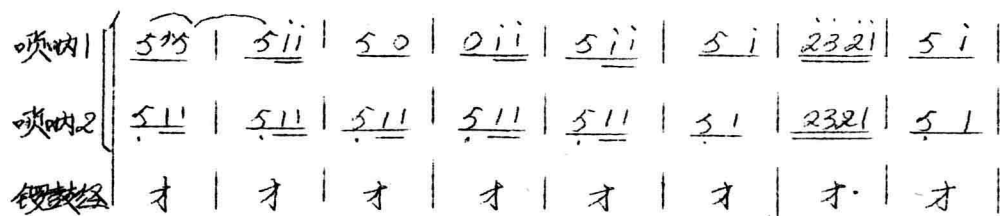 唢呐1 5 5 | 5 i i | 5 0 | 0 i i | 5 i i | 5 i | 2̇ 3̇ 2̇ i | 5 i |
唢呐2 5̣ 1 1 | 5̣ 1 1 | 5̣ 1 1 | 5̣ 1 1 | 5̣ 1 1 | 5̣ 1 | 2 3 2 1 | 5̣ 1 |
锣鼓经 才 | 才 | 才 | 才 | 才 | 才 | 才· | 才 |